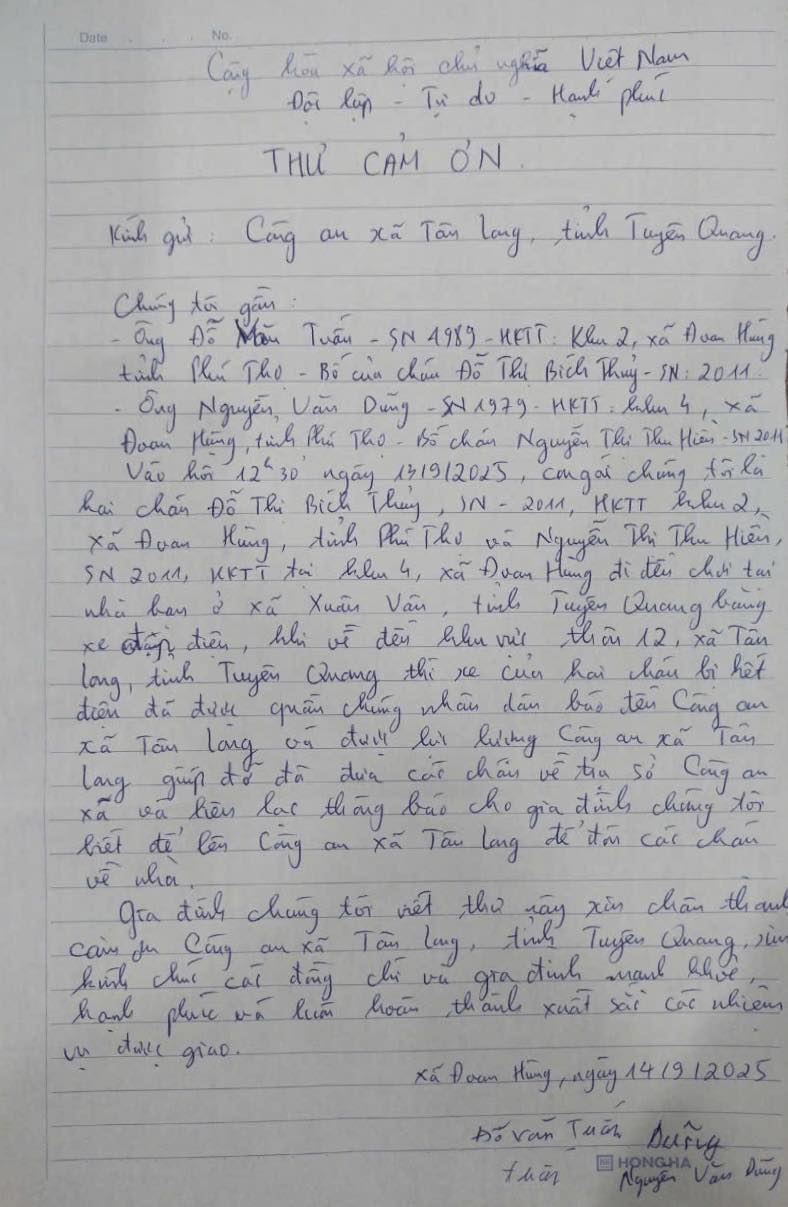 Date No.
Cộng hòa xã hội chủ nghĩa Việt Nam
Độc lập - Tự do - Hạnh phúc
THƯ CẢM ƠN
Kính gửi: Công an xã Tân Long, tỉnh Tuyên Quang.
Chúng tôi gồm:
- Ông Đỗ Văn Tuấn - SN 1989 - HKTT: Khu 2, xã Đoan Hùng
tỉnh Phú Thọ - Bố của cháu Đỗ Thị Bích Thuỷ - SN: 2011
- Ông Nguyễn Văn Dũng - SN 1979 - HKTT: khu 4, xã
Đoan Hùng, tỉnh Phú Thọ - Bố cháu Nguyễn Thị Thu Hiền - SN 2011
Vào hồi 12h30' ngày 13/9/2025, con gái chúng tôi là
hai cháu Đỗ Thị Bích Thuỷ, SN - 2011, HKTT khu 2,
xã Đoan Hùng, tỉnh Phú Thọ và Nguyễn Thị Thu Hiền,
SN 2011, HKTT tại khu 4, xã Đoan Hùng đi đến chơi tại
nhà bạn ở xã Xuân Vân, tỉnh Tuyên Quang bằng
xe đạp điện, khi về đến khu vực thôn 12, xã Tân
Long, tỉnh Tuyên Quang thì xe của hai cháu bị hết
điện đã được quần chúng nhân dân báo đến Công an
xã Tân Long và được lực lượng Công an xã Tân
Long giúp đỡ đã đưa các cháu về trụ sở Công an
xã và liên lạc thông báo cho gia đình chúng tôi
biết để lên Công an xã Tân Long để đón các cháu
về nhà.
Gia đình chúng tôi viết thư này xin chân thành
cảm ơn Công an xã Tân Long, tỉnh Tuyên Quang, xin
kính chúc các đồng chí và gia đình mạnh khoẻ,
hạnh phúc và luôn hoàn thành xuất sắc các nhiệm
vụ được giao.
xã Đoan Hùng, ngày 14/9/2025
Đỗ Văn Tuấn Dũng
Tuấn HONG HA Nguyễn Văn Dũng